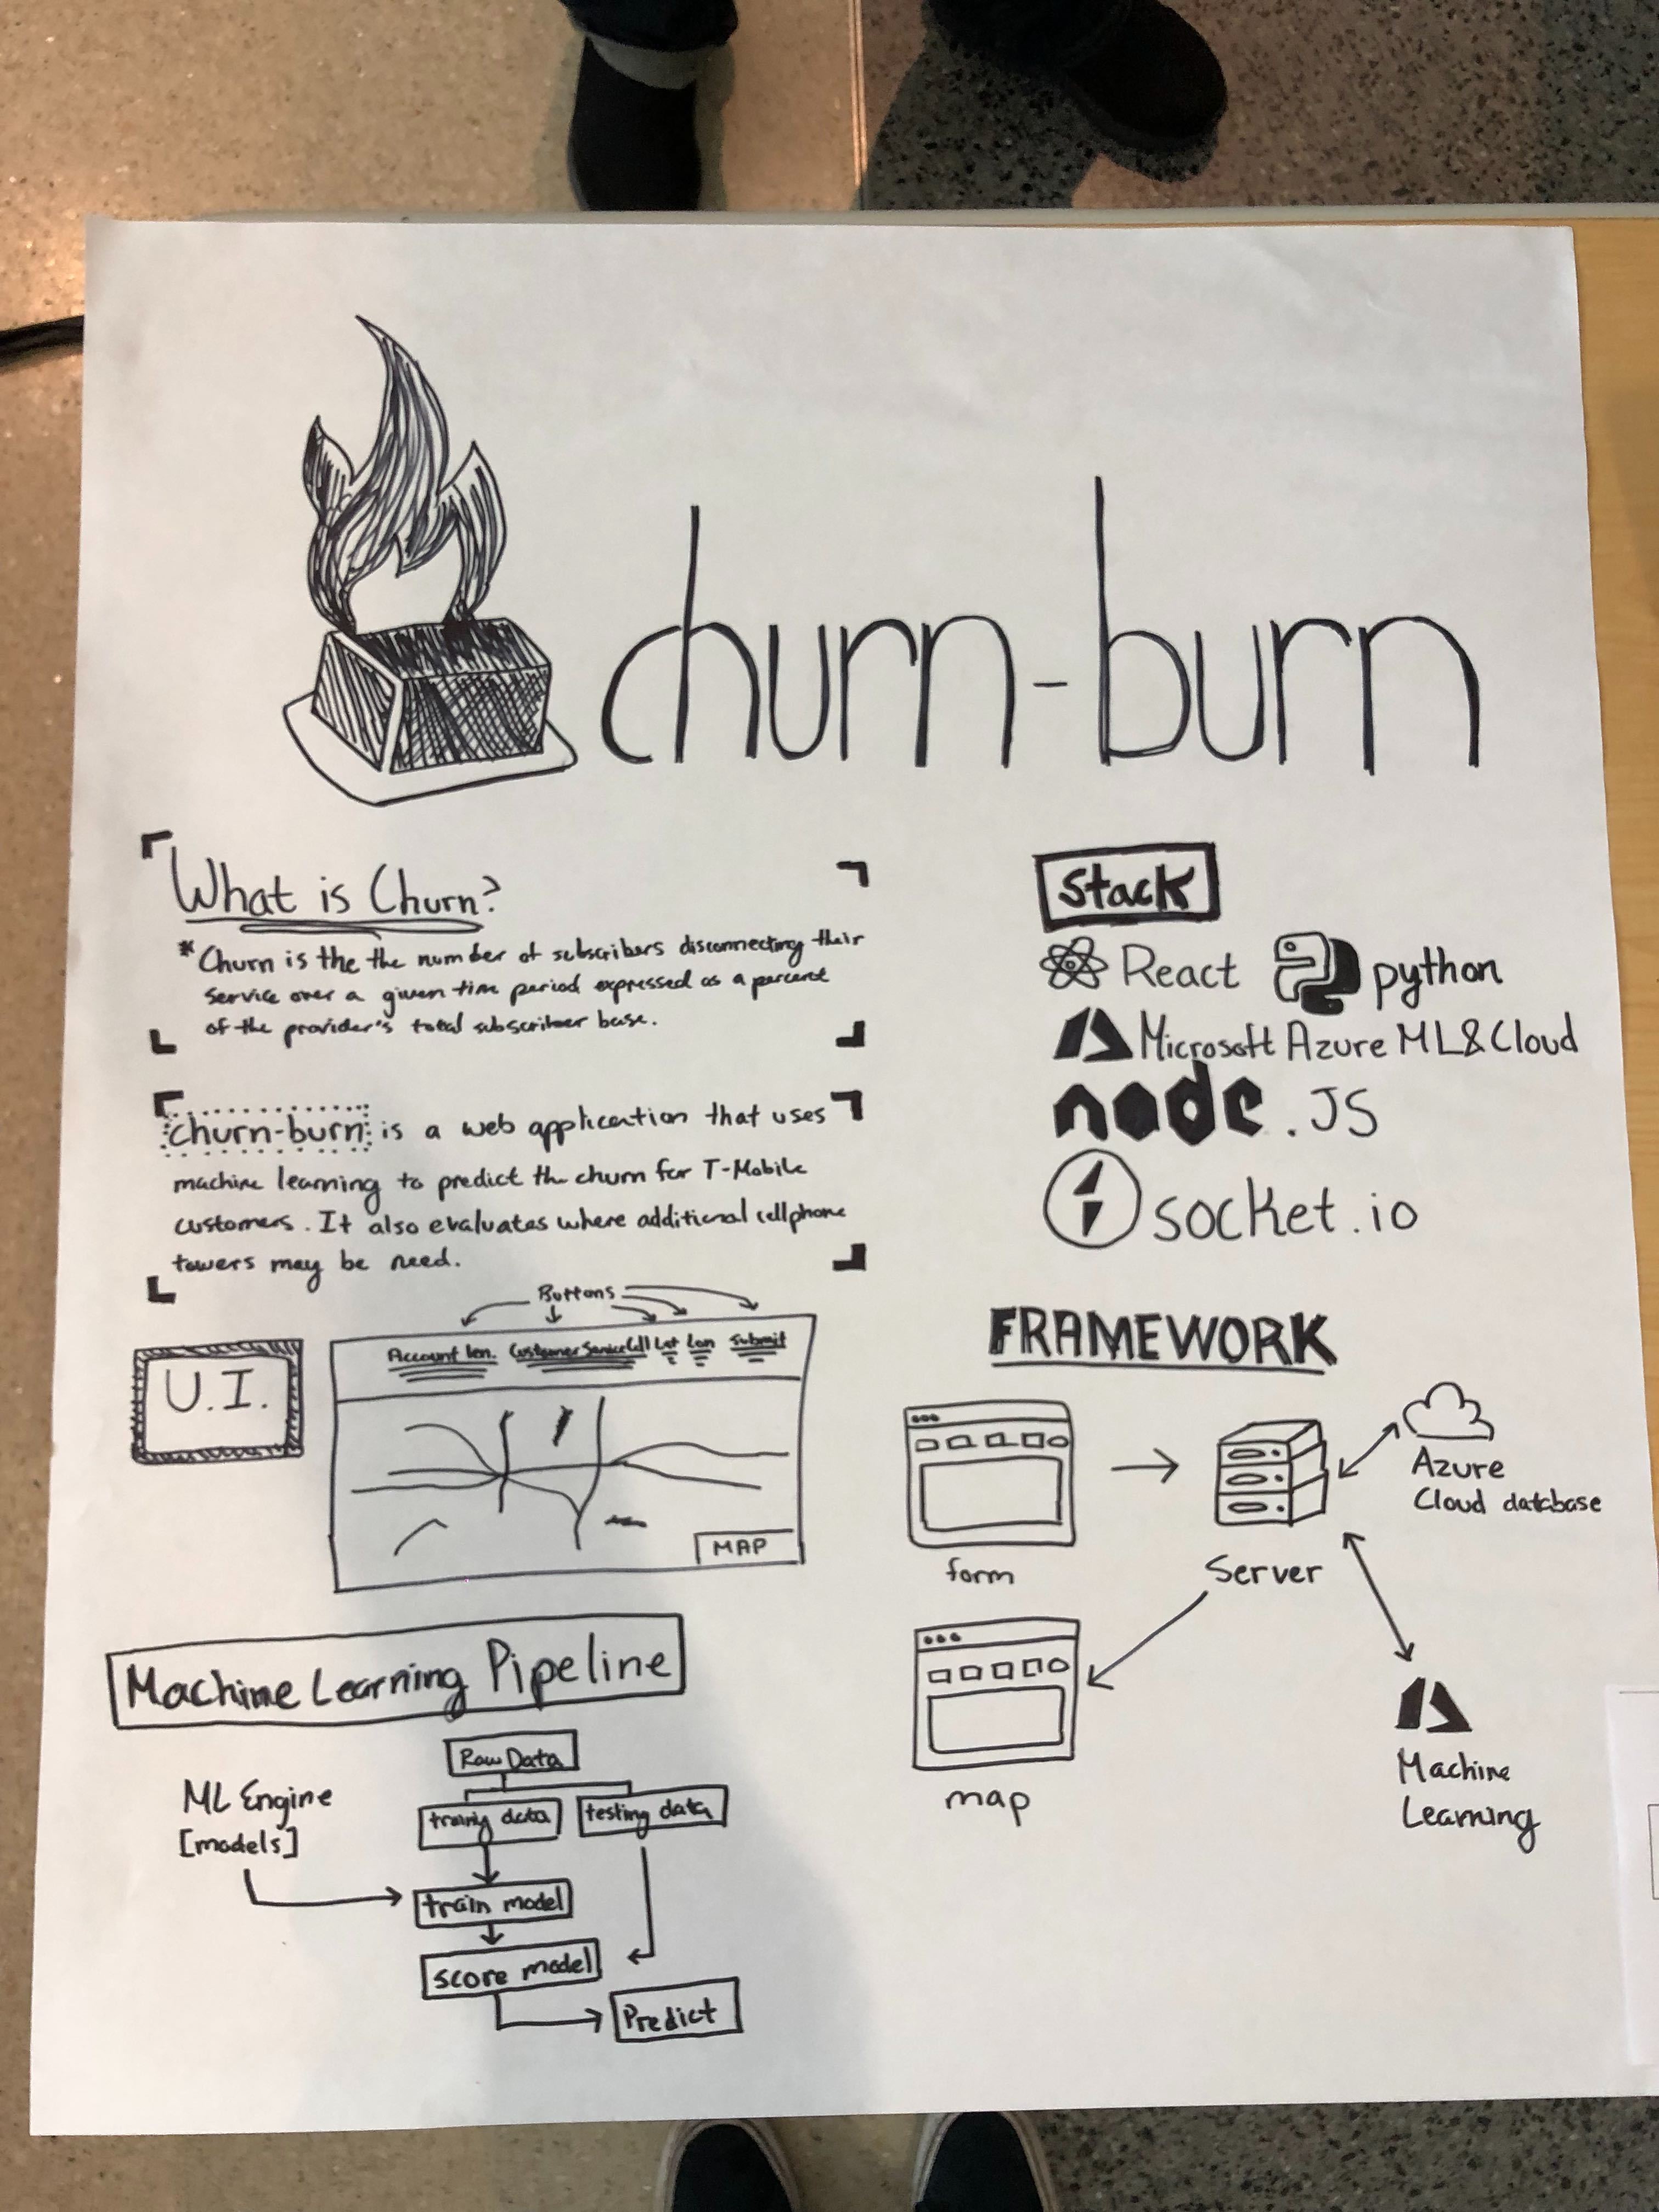 churn-burn
What is Churn?
* Churn is the the number of subscribers disconnecting their
service over a given time period expressed as a percent
of the provider's total subscriber base.
churn-burn is a web application that uses
machine learning to predict the churn for T-Mobile
customers. It also evaluates where additional cellphone
towers may be need.
Stack
React python
Microsoft Azure ML&Cloud
node.JS
socket.io
U.I.
Buttons
Account len. Customer Service Call Lat Lon Submit
MAP
FRAMEWORK
form
Server
Azure
Cloud database
map
Machine
Learning
Machine Learning Pipeline
ML Engine
[models]
Raw Data
training data testing data
train model
score model
Predict